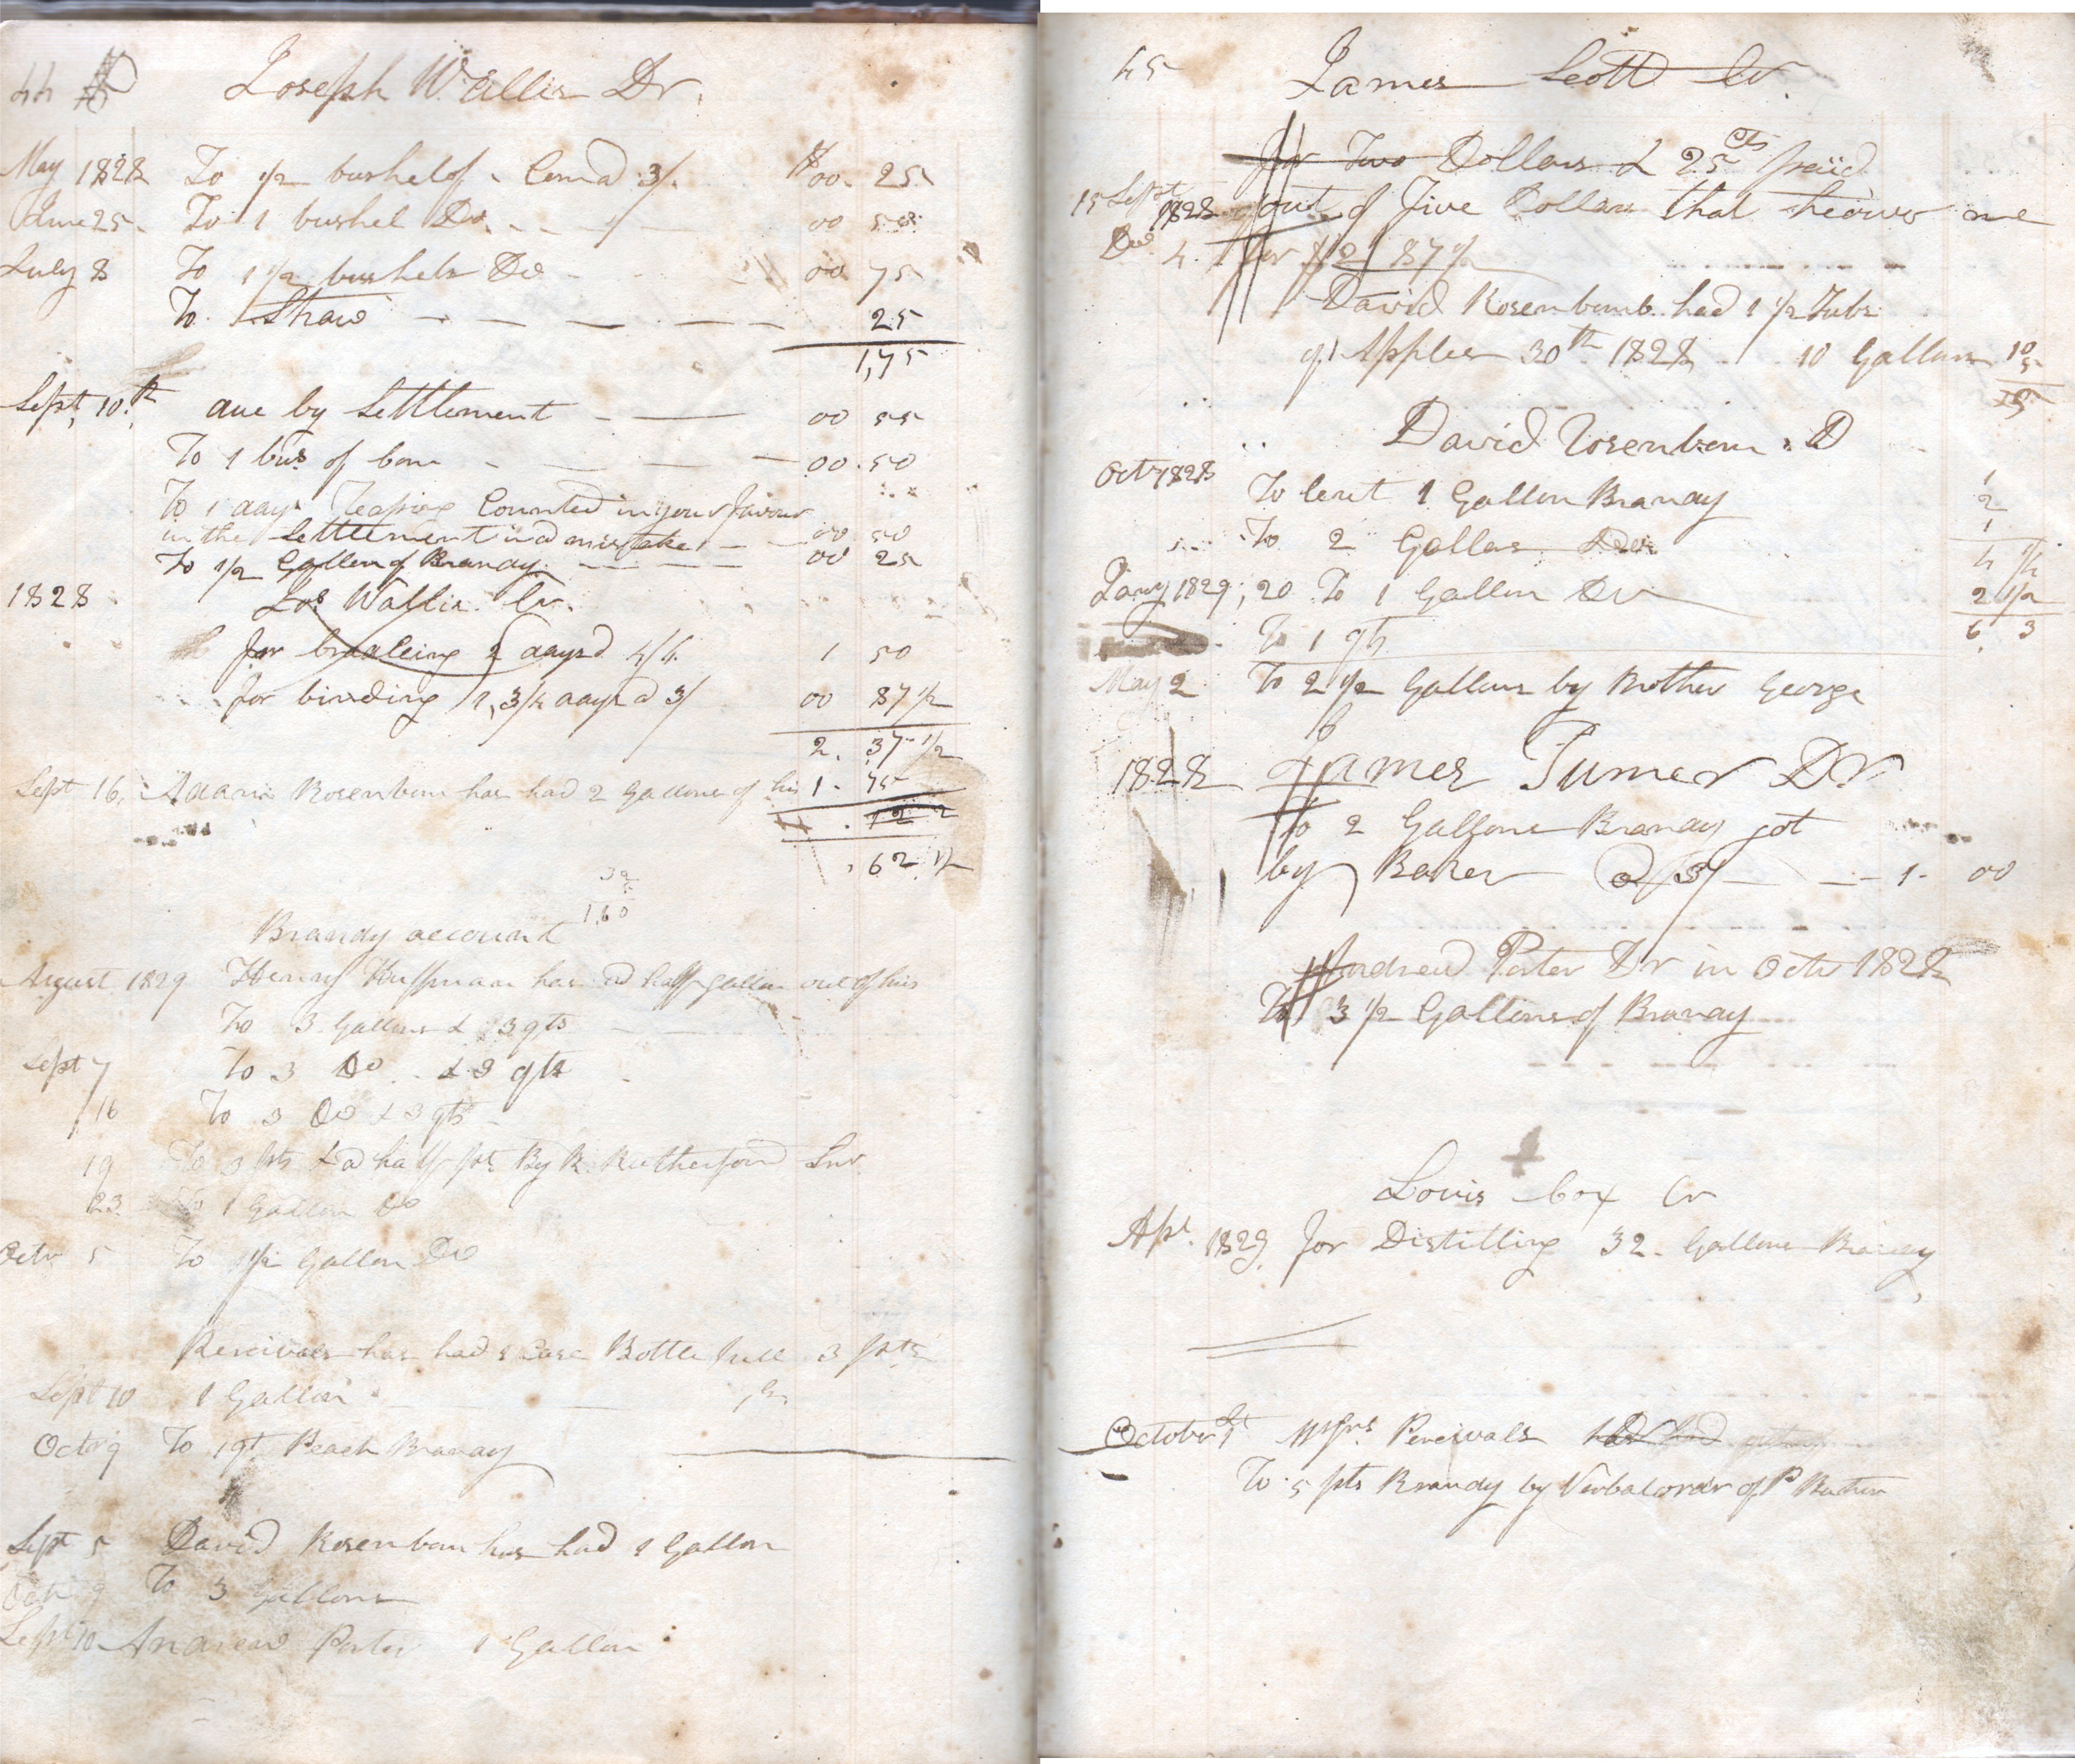 44
Joseph Wallis Dr.
May 1828 To 1/2 bushel of Corn a 3/. $00. 25
June 25. To 1 bushel Do. 00 50
July 8 To 1 1/2 bushels Do 00. 75
To Straw 25
1,75
Sept, 10th due by Settlement 00 55
To 1 bus of corn 00.50
To 1 days Reaping Counted in your favour
in the Settlement in a mistake 00 50
To 1/2 Gallon of Brandy 00 25
1828 Jos Wallis Cr.
for braking 2 days a 4/6 1 50
for binding 1, 3/4 days a 3/ 00 87 1/2
2. 37 1/2
Sept 16, Adam Rosenbum has had 2 Gallons of his 1. 75
12 2
. 62 1/2
32
5
1,60
Brandy account
August 1829 Henry Huffman has a half gallon out of his
To 3 Gallons & 3 qts
Sept 7 To 3 Do & 3 qts
16 To 3 Do & 3 qts
19 To 3 pts & a half pt By R Rutherford Snr.
23 To 1 Gallon Do
Octr 5 To 1/2 Gallon Do
Percivals has had 1 Case Bottle full 3 pts
Sept 10 1 Gallon
Octr 9 To 1 qt Peach Brandy
Sept 5 David Rosenbum has had 1 Gallon
Octr 9 To 3 Gallons
Sept 10 Andrew Porter 1 Gallon
45
James Scott Cr.
for Two Dollars & 25 cts paid
15 Sept 1828 out of five Dollars that he owes me
Do. 4. for $2 87 1/2
David Rosenbumb had 1 1/2 Tubs
of Apples 30th 1828 10 Gallons 10
5
15
David Rosenbum D
Octr 1828 To lent 1 Gallon Brandy 1
To 2 Gallos Do 2
1
4 1/4
Jany 1829, 20 To 1 Gallon Do 2 1/2
To 1 qt 6 3
May 2 To 2 1/2 Gallons by Brother George
1828 James Turner Dr.
To 2 Gallons Brandy got
by Baker @ 3/ 1. 00
Andrew Porter Dr in Octr 1828
To 3 1/2 Gallons of Brandy
Louis Cox Cr
Apl. 1829 for Distilling 32 Gallons Brandy
October 1st Mrs Percivals had had
To 5 pts Brandy by Verbal order of P Ruther